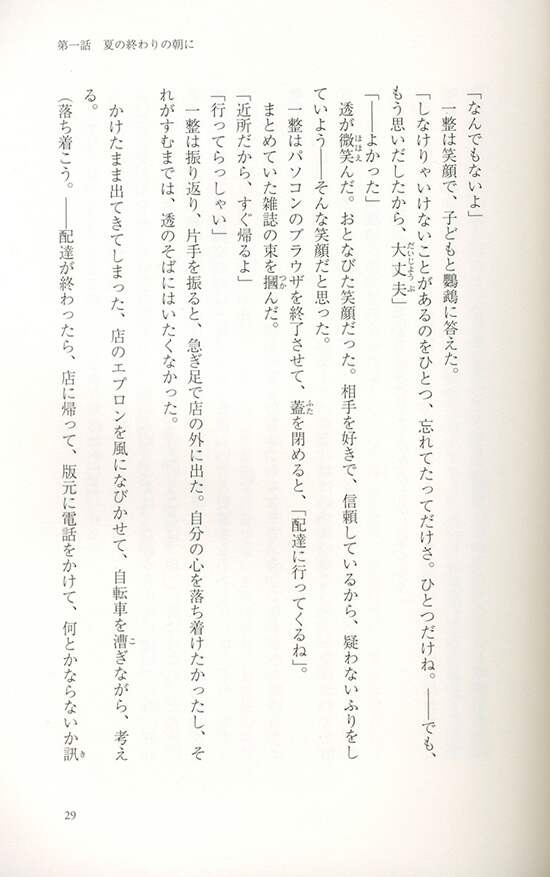 第一話　夏の終わりの朝に
「なんでもないよ」
　一整は笑顔で、子どもと鸚鵡に答えた。
「しなけりゃいけないことがあるのをひとつ、忘れてたってだけさ。ひとつだけね。――でも、
もう思いだしたから、大丈夫」
「――よかった」
　透が微笑んだ。おとなびた笑顔だった。相手を好きで、信頼しているから、疑わないふりをし
ていよう――そんな笑顔だと思った。
　一整はパソコンのブラウザを終了させて、蓋を閉めると、「配達に行ってくるね」。
まとめていた雑誌の束を摑んだ。
「近所だから、すぐ帰るよ」
「行ってらっしゃい」
　一整は振り返り、片手を振ると、急ぎ足で店の外に出た。自分の心を落ち着けたかったし、そ
れがすむまでは、透のそばにはいたくなかった。
　かけたまま出てきてしまった、店のエプロンを風になびかせて、自転車を漕ぎながら、考え
る。
（落ち着こう。――配達が終わったら、店に帰って、版元に電話をかけて、何とかならないか訊
29